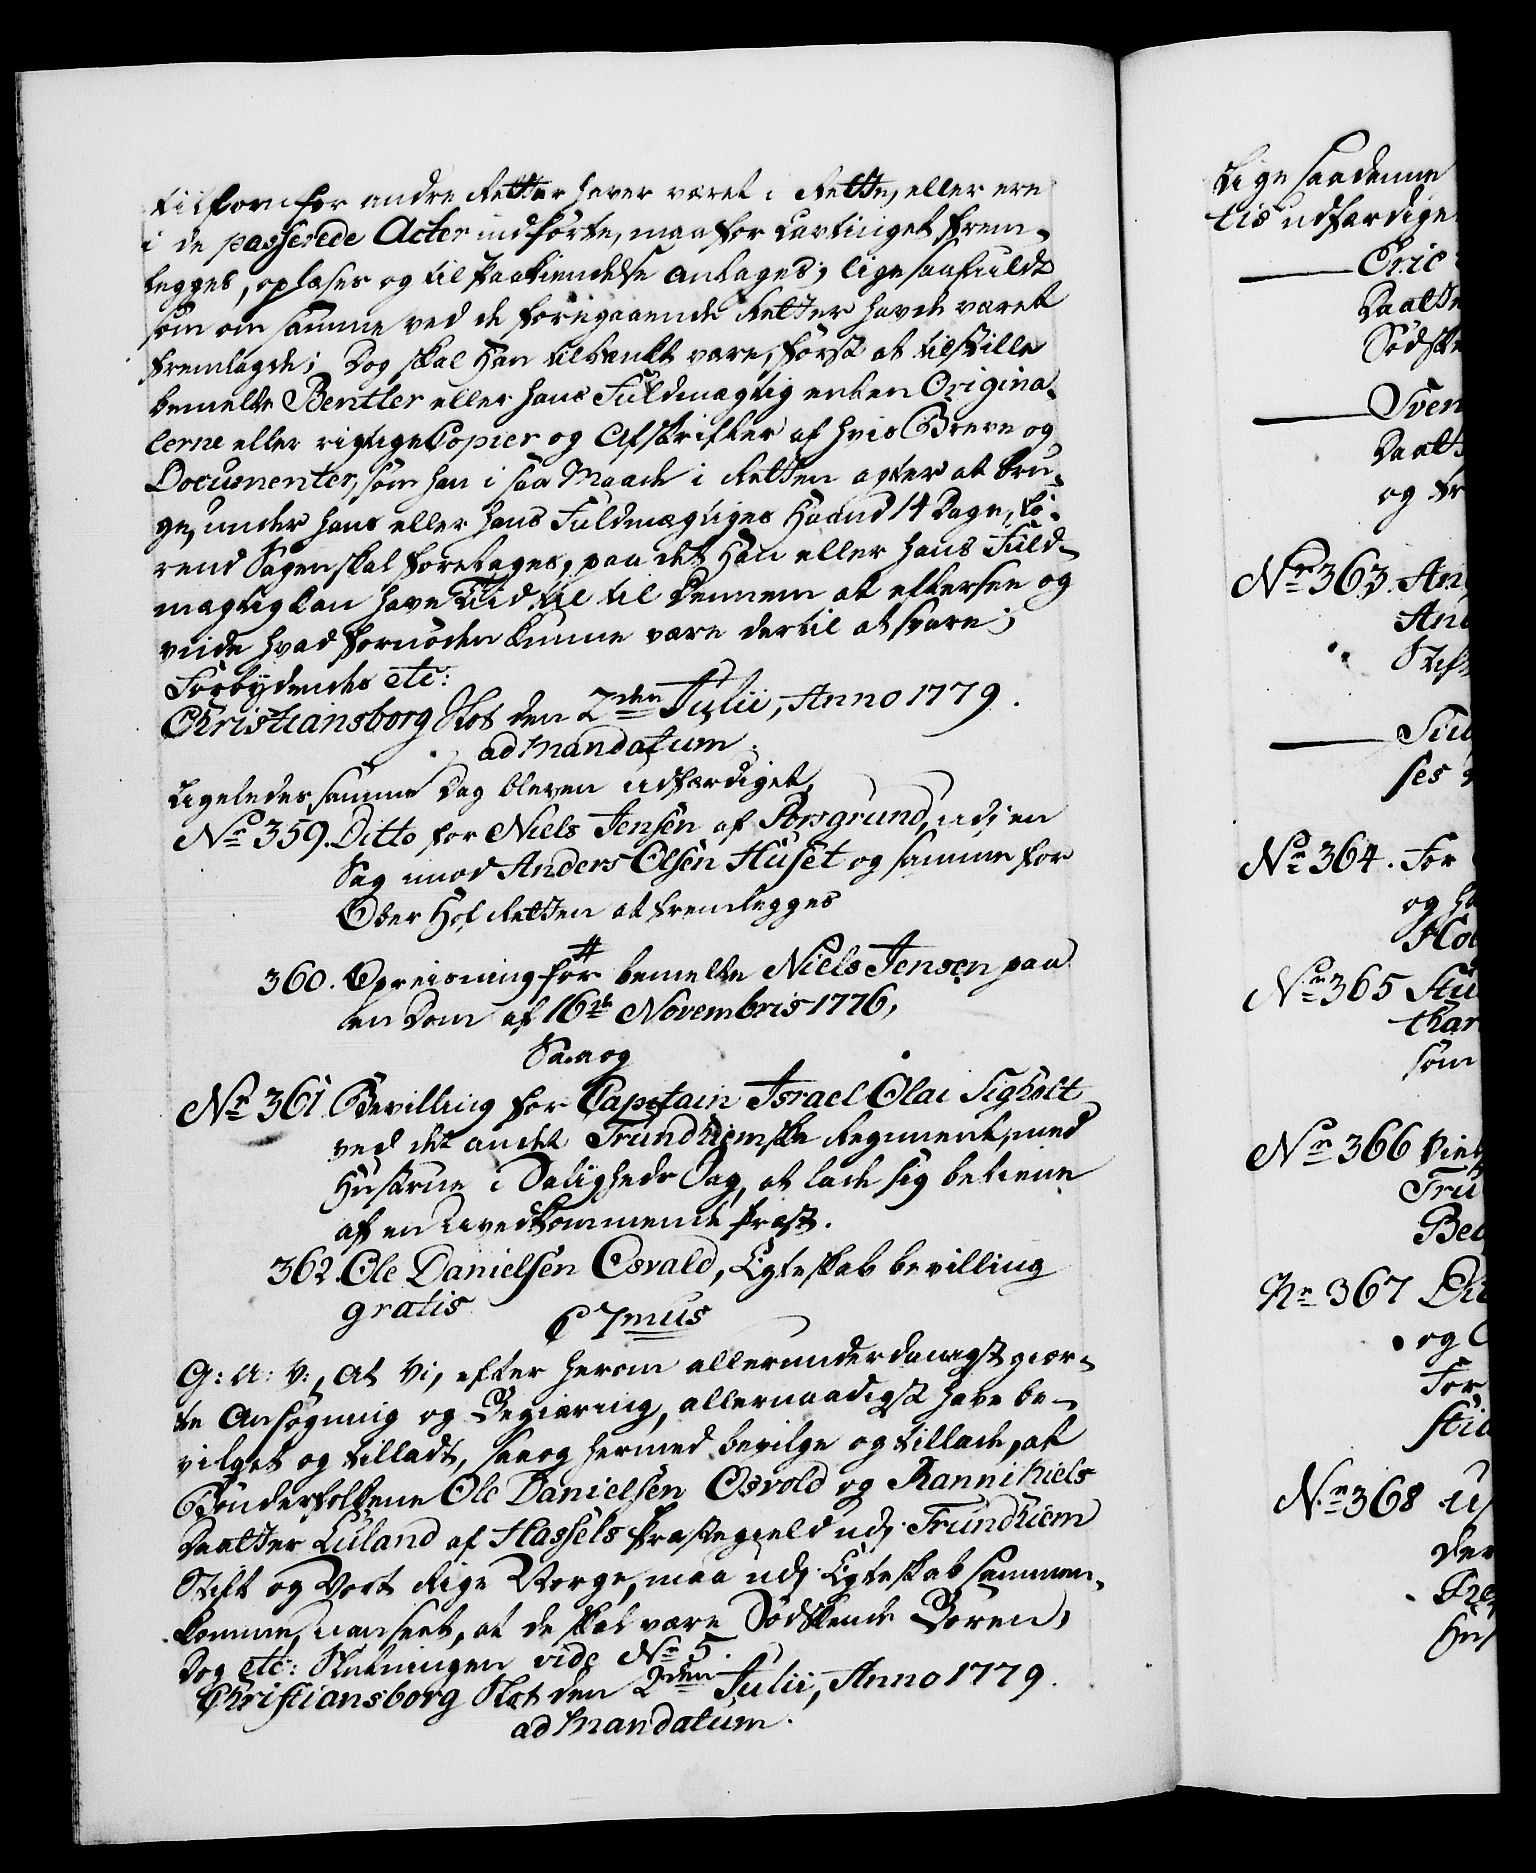 tilforn for andre Retter haver været i Rette, eller ere
i de passerede Acter indførte, maa for Lavtinget frem-
legges, oplæses og til Paakiendelse antages, lige saa fuldt
som om samme ved de foregaaende Retter havde været
fremlagde; Dog skal Han tiltænkt være, først at tilstille
bemelte Bentler eller hans Fuldmægtig enten Origina-
lerne eller rigtige Copier og Afskrifter af hvis Breve og
Documenter, som han i saa Maade i Retten agter at bru-
ge, under hans eller hans Fuldmægtiges Haand 14 Dage, fö-
rend Sagen skal foretages, paa det Han eller hans Fuld-
mægtig kan have Tiid til til Dennem at eftersee og
viide hvad fornöden kunne være dertil at svare;
Forbydendes etc:
Christiansborg Slot den 2den Julii, Anno 1779.
ad mandatum.
Ligeledes samme Dag bleven udfærdiget,
No 359. Ditto for Niels Jensen af Porsgrund, udj en
Sag imod Anders Olsen Huset og samme for
Ober Hof Retten at fremlegges
360. Opreisning for bemelte Niels Jensen paa
en Dom af 16de Novembris 1776,
Saa og
Nr 361 Bevilling for Captain Israel Olai Sigholt
ved det andet Trundhiemske Regiment, med
Hustrue i Saligheds Sag, at lade sig betiene
af en Uvedkommende Præst.
362. Ole Danielsen Osvald, Egteskab bevilling
gratis
C 7mus
G: A: V:, At Vi, efter herom allerunderdanigst gior-
te Ansøgning og Begiæring, allernaadigst have be-
vilget og tilladt, saa og hermed bevilge og tillade, at
Bønderfolkene Ole Danielsen Osvold og Ranni Niels
Daatter Luland af Hassels Præstegield udj Trundhiem
Stift og Vort Rige Norge, maa udj Egteskab sammen-
komme, uanseet, at de skal være Södskende Børen,
Dog etc: Slutningen vide No 5.
Christiansborg Slot den 2den Julii, Anno 1779.
ad mandatum.
Lige saadanne
tis udfærdige
Eric
Daatte
Södske
Sven
Daatt
og fr
Nr 363. An
And
Stift
ses
Nr 364. For
og ha
Nr 365
som
Nr 366
Tru
Nr 367
og
For
Nr 368